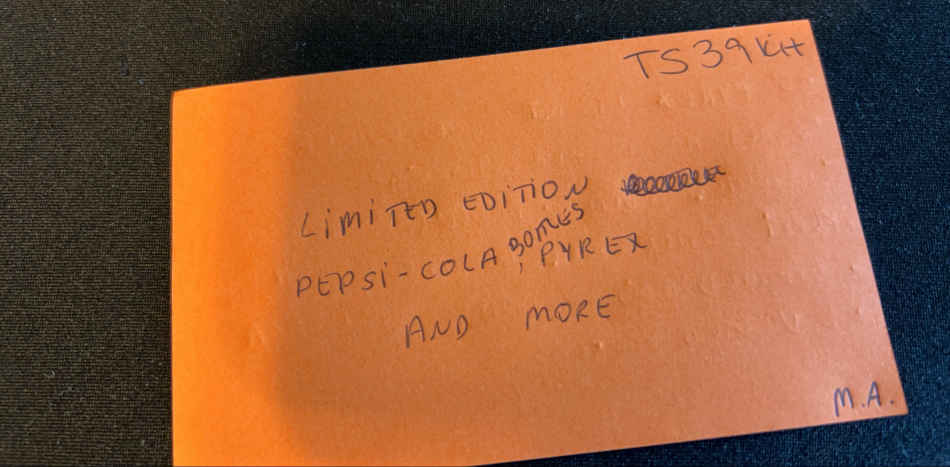 TS39 Kit
LiMiTED EDiTiON
PEPSi-COLA BOTTLES, PYREX
AND MORE
M.A.